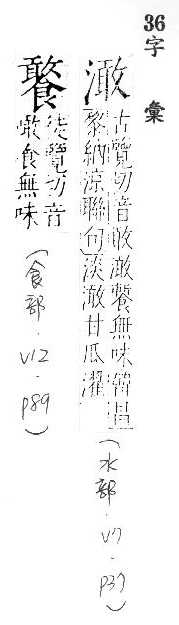 36字彙
澉
古覽切音敢澉無味韓昌
黎納涼聯句淡澉甘瓜濯
(水部.V7.P37)
徒覽切音
噉食無味
(食部.V12.P89)